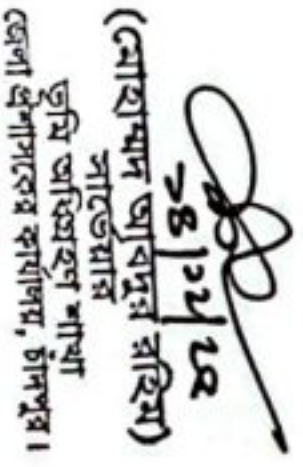 ১৪/১২/২৫
(মোহাম্মদ আবদুর রহিম)
সার্ভেয়ার
ভূমি অধিগ্রহণ শাখা
জেলা প্রশাসকের কার্যালয়, চাঁদপুর।